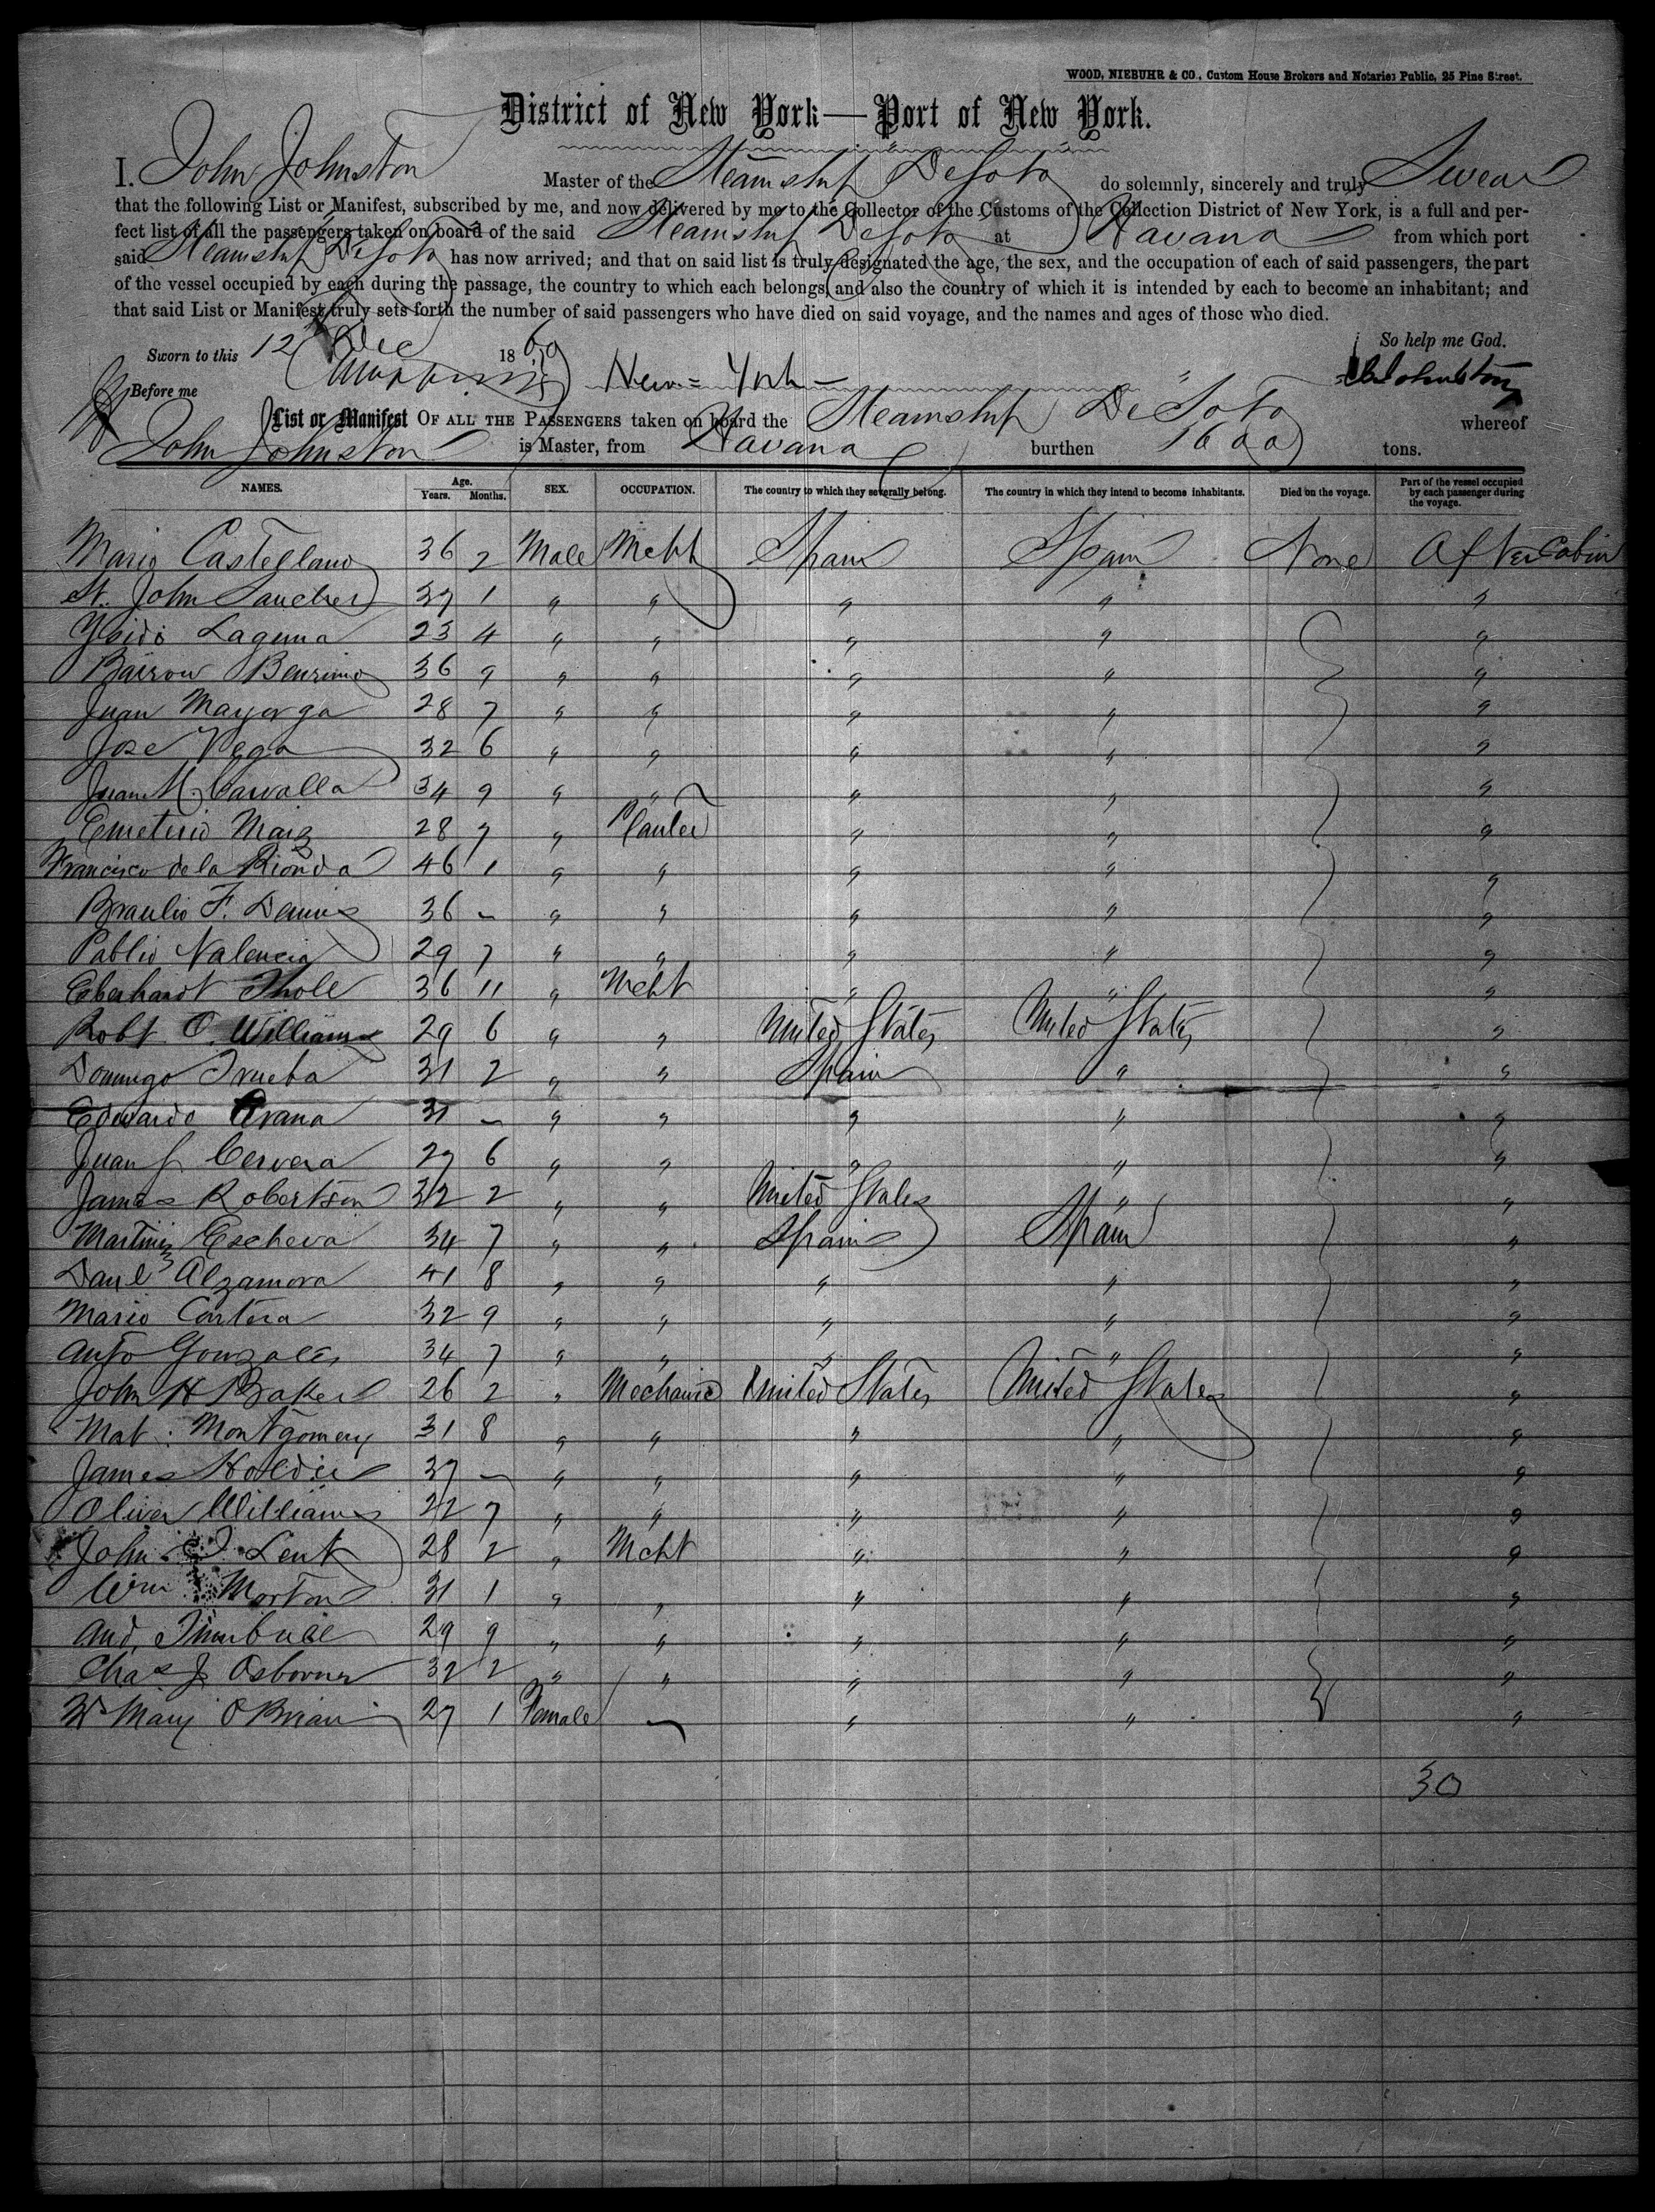 WOOD, NIEBUHR & CO., Custom House Brokers and Notaries Public, 25 Pine Street.
District of New York—Port of New York.
I. John Johnston Master of the Steamship DeSoto do solemnly, sincerely and truly Swear
that the following List or Manifest, subscribed by me, and now delivered by me to the Collector of the Customs of the Collection District of New York, is a full and per-
fect list of all the passengers taken on board of the said Steamship DeSoto at Havana from which port
said Steamship DeSoto has now arrived; and that on said list is truly designated the age, the sex, and the occupation of each of said passengers, the part
of the vessel occupied by each during the passage, the country to which each belongs, and also the country of which it is intended by each to become an inhabitant; and
that said List or Manifest truly sets forth the number of said passengers who have died on said voyage, and the names and ages of those who died.
So help me God.
Sworn to this 12 Dec 1869
Before me New=York— Johnston
List or Manifest OF ALL THE PASSENGERS taken on board the Steamship DeSoto whereof
John Johnston is Master, from Havana burthen 1600 tons.
NAMES. Age. Years. Months. SEX. OCCUPATION. The country to which they severally belong. The country in which they intend to become inhabitants. Died on the voyage. Part of the vessel occupied by each passenger during the voyage.
Mario Castellano 36 2 Male Mcht Spain Spain None After Cabin
St. John Sanchez 37 1 " " " " "
Ysido Laguna 23 4 " " " " "
Barrow 36 9 " " " " "
Juan Mayorga 28 7 " " " " "
Jose Vega 32 6 " " " " "
Juan M. Carvalla 34 9 " " " " "
Emeterio Maiz 28 7 " Planter " " "
Francisco de la Rionda 46 1 " " " " "
Braulio F. Dennis 36 - " " " " "
Pablio Valencia 29 7 " " " " "
Eberhardt Thole 36 11 " Mcht " " "
Robt O. Williams 29 6 " " United States United States "
Domingo Trueba 31 2 " " Spain " "
Edwardo Arana 31 - " " " " "
Juan J. Cervera 27 6 " " " " "
James Robertson 32 2 " " United States " "
Martinez Escheva 34 7 " " Spain Spain "
Danl Alzamora 41 8 " " " " "
Mario Cortera 32 9 " " " " "
Anto Gonzales 34 7 " " " " "
John H Baker 26 2 " Mechanic United States United States "
Mat. Montgomery 31 8 " " " " "
James Holdie 37 - " " " " "
Oliver Williams 22 7 " " " " "
John Lent 28 2 " Mcht " " "
Wm Morton 31 1 " " " " "
And. Turnbull 29 9 " " " " "
Chas J. Osborne 32 2 " " " " "
Mary O Brian 27 1 Female - " " "
30